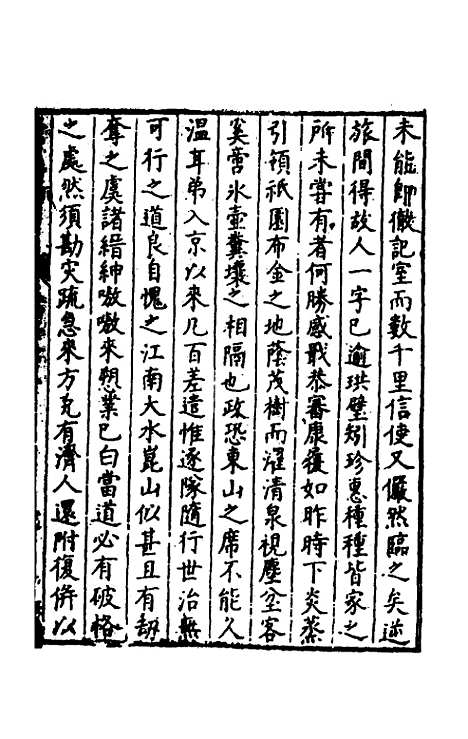 未能即儆記室而數千里信使又儼然臨之矣逆
旅間得故人一字已逾珙璧矧珍惠種種皆家之
所未嘗有者何勝感戢恭審康復如昨時下炎蒸
引領祇園布金之地蔭茂樹而濯清泉視塵坌客
奚啻氷壺糞壤之相隔也政恐東山之席不能久
溫耳弟入京以來凡百差遣惟逐隊隨行世治無
可行之道良自愧之江南大水崑山似甚且有劫
奪之虞諸縉紳嗷嗷來愬業已白當道必有破格
之處然須勘灾疏急來方克有濟人還附復併以